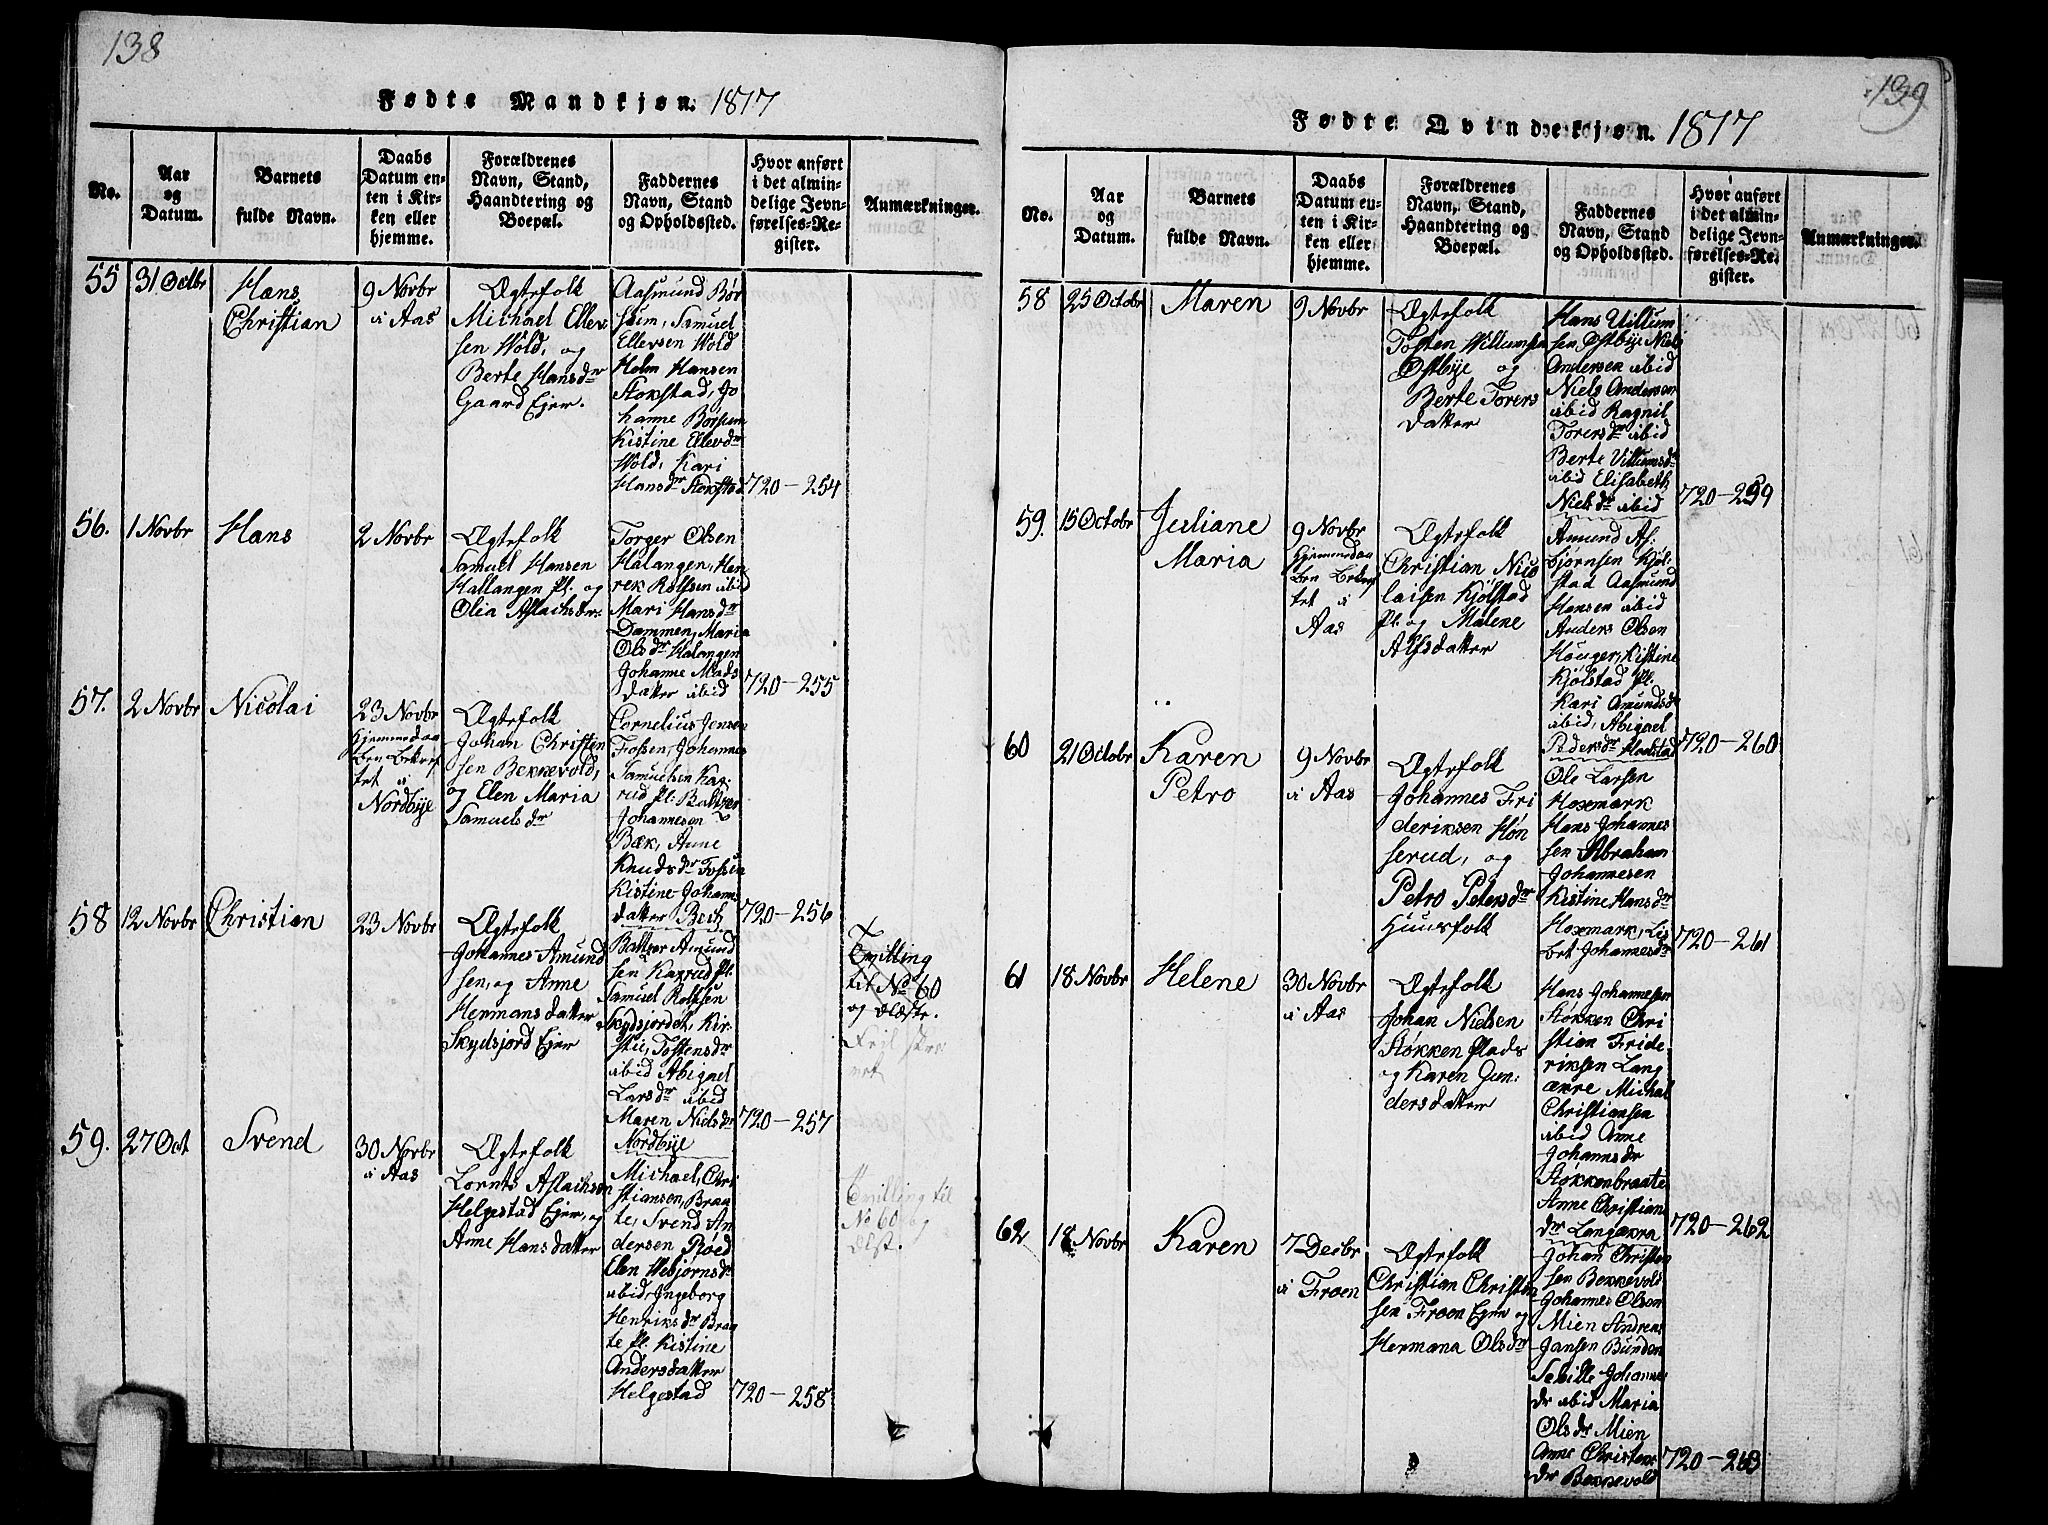 138
Fødte Mandkjøn. 1817
No.
Aar
og
Datum.
Barnets
fulde Navn.
Daabs
Datum en-
ten i Kir-
ken eller
hjemme.
Forældrenes
Navn, Stand,
Haandtering og
Boepæl.
Faddernes
Navn, Stand
og Opholdssted.
Hvor anført
i det almin-
delige Jevn-
førelses-Re-
gister.
Anmærkninger.
55
31 Octbr
Hans
Christian
9 Novbr
i Aas
Ægtefolk
Michael Ellev
sen Wold, og
Berte Hansdr
Gaard Ejer.
Aasmund Bør
sum, Samuel
Ellevsen Wold
Holm Hansen
Stokstad, Jo
hanne Børsum
Kistine Ellevdr
Wold, Kari
Hansdr Stokstad
720-254
56.
1 Novbr
Hans
2 Novbr
Ægtefolk
Samuel Hansen
Hallangen Pl. og
Olia Aslachsdr.
Torger Olsen
Halangen, Hen
rek Rolfsen ibid
Mari Hansdr
Dammen, Maria
Olsdr Halangen
Johanne Mads
datter ibid
720-255
57.
2 Novbr
Nicolai
23 Novbr
Hjemmedaa
ben bekræf
tet i
Nordbye
Ægtefolk
Johan Christen
sen Bekkevold,
og Elen Maria
Samuelsdr
Cornelius Jensen
Fossen, Johannes
Samuelsen Kax
rud Pl. Baltzer
Johannesen
Bæk, Anne
Knudsdr Fossen
Kistine Johanns
datter Bech
720-256
58
12 Novbr
Christian
23 Novbr
Ægtefolk
Johannes Amund
sen, og Anne
Hermansdatter
Skydsjord Ejer
Baltzer Amund
sen Kaxrud Pl.
Samuel Rolfsen
Skydsjordet, Kir
stie, Tostensdr
ibid Abigael
Larsdr ibid
Maren Nielsdr
Nordbye
720-257
Tvilling
til No 60
og ælste.
Feil skre
vet
59.
27 Oct
Svend
30 Novbr
i Aas
Ægtefolk
Lornts Aslachsen
Helgestad Ejer, og
Anne Hansdatter
Michael Chri
stiansen, Braa
te, Svend An
dersen Røed
Elen Webjørnsdr
ibid, Ingeborg
Henriksdr Braa
te Pl. Kistine
Andersdatter
Helgestad
720-258
Tvilling til
No 60 og
ælst.
139
Fødte Qvindekjøn. 1817
No.
Aar
og
Datum.
Barnets
fulde Navn.
Daabs
Datum en-
ten i Kir-
ken eller
hjemme.
Forældrenes
Navn, Stand,
Haandtering og
Boepæl.
Faddernes
Navn, Stand
og Opholdssted.
Hvor anført
i det almin-
delige Jevn-
førelses-Re-
gister.
Anmærkninger.
58
25 Octobr
Maren
9 Novbr
Ægtefolk
Tosten Willumsen
Østbye og
Berte Torers
datter
Hans Villum
sen Østbye Niels
Andersen ibid
Niels Andersen
ibid Ragnil
Torersdr ibid
Berte Villumsdr
ibid Elisabeth
Nielsdr ibid
720-259
59.
15 Octobr
Juliane
Maria
9 Novbr
Hjemmedaa
ben bekræf
tet i
Aas
Ægtefolk
Christian Nico
laisen Kjølstad
Pl. og Malene
Alfsdatter
Amund As-
bjørnsen Kjøl-
stad Aasmund
Hansen ibid
Anders Olsen
Houger, Kistine
Kjølstad Pl.
Kari Amundsdr
ibid, Abigael
Pedersdr Hoelstad
720-260
60
21 Octobr
Karen
Petro
9 Novbr
i Aas
Ægtefolk
Johannes Fri
deriksen Høn
serud, og
Petro Petersdr
Huusfolk
Ole Larsen
Hoxmark
Hans Johannes
sen Abraham
Johannesen
Kistine Hansdr
Hoxmark, Lis
bet Johannesdr
720-261
61
18 Novbr
Helene
30 Novbr
i Aas
Ægtefolk
Johan Nielsen
Støkken Plads
og Karen Gun-
dersdatter
Hans Johannesen
Støkken Chri
stian Fride
riksen Lang
ækre Michal
Christiansen
ibid Anne
Johannsdr
Støkkenbraate
Anne Christian
dr Langækra
720-262
62
18 Novbr
Karen
7 Decbr
i Froen
Ægtefolk
Christian Christen
sen Froen Ejer og
Hermana Olsdr
Johan Christen
sen Bekkevold
Johannes Olsen
Mien Andreas
Jansen Bunden
Sebille Johannes
dr ibid Maria
Olsdr Mien
Anne Christens
dr Bekkevold
720-263